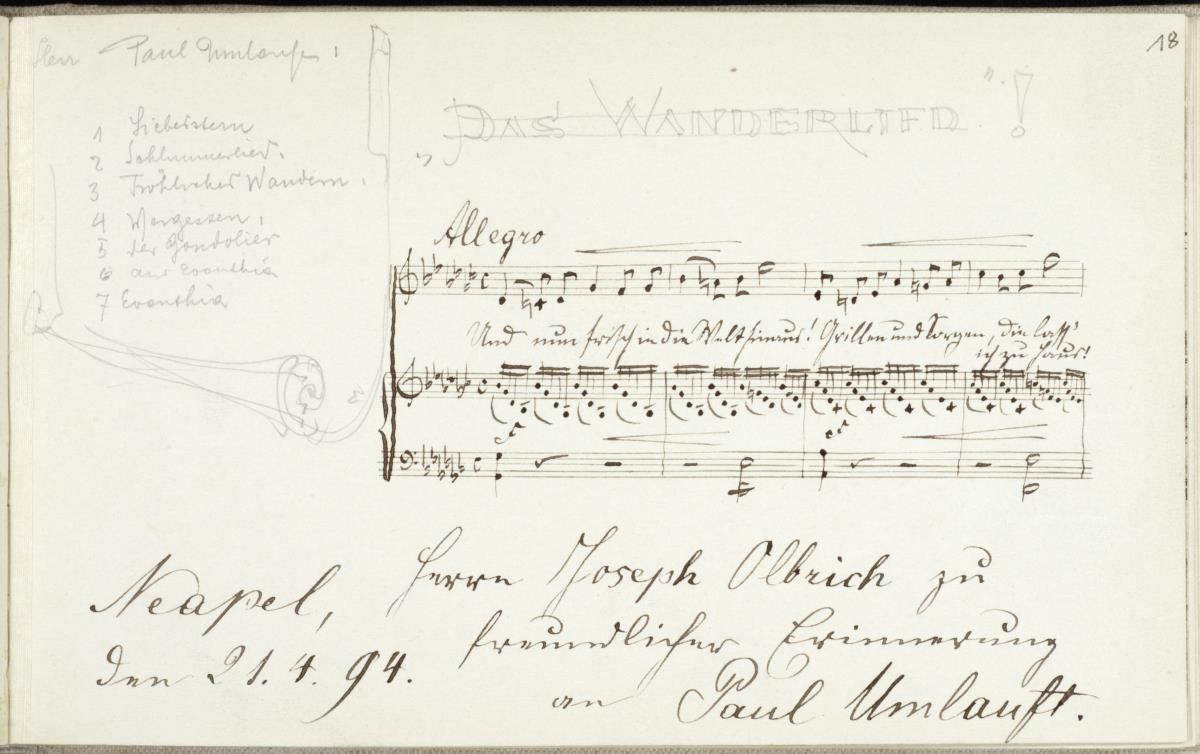 18
Herr Paul Umlauft.
1 Liebesstern
2 Schlummerlied.
3 Fröhliches Wandern.
4 Vergessen.
5 der Gondolier
6 aus Evanthia
7 Evanthia
„DAS WANDERLIED"!
Allegro
Und nun frisch in die Welt hinaus! Grillen und Sorgen, die lass'
ich zu Haus!
ff
ff
Neapel,
den 21. 4. 94.
Herrn Joseph Olbrich zu
freundlicher Erinnerung
an Paul Umlauft.